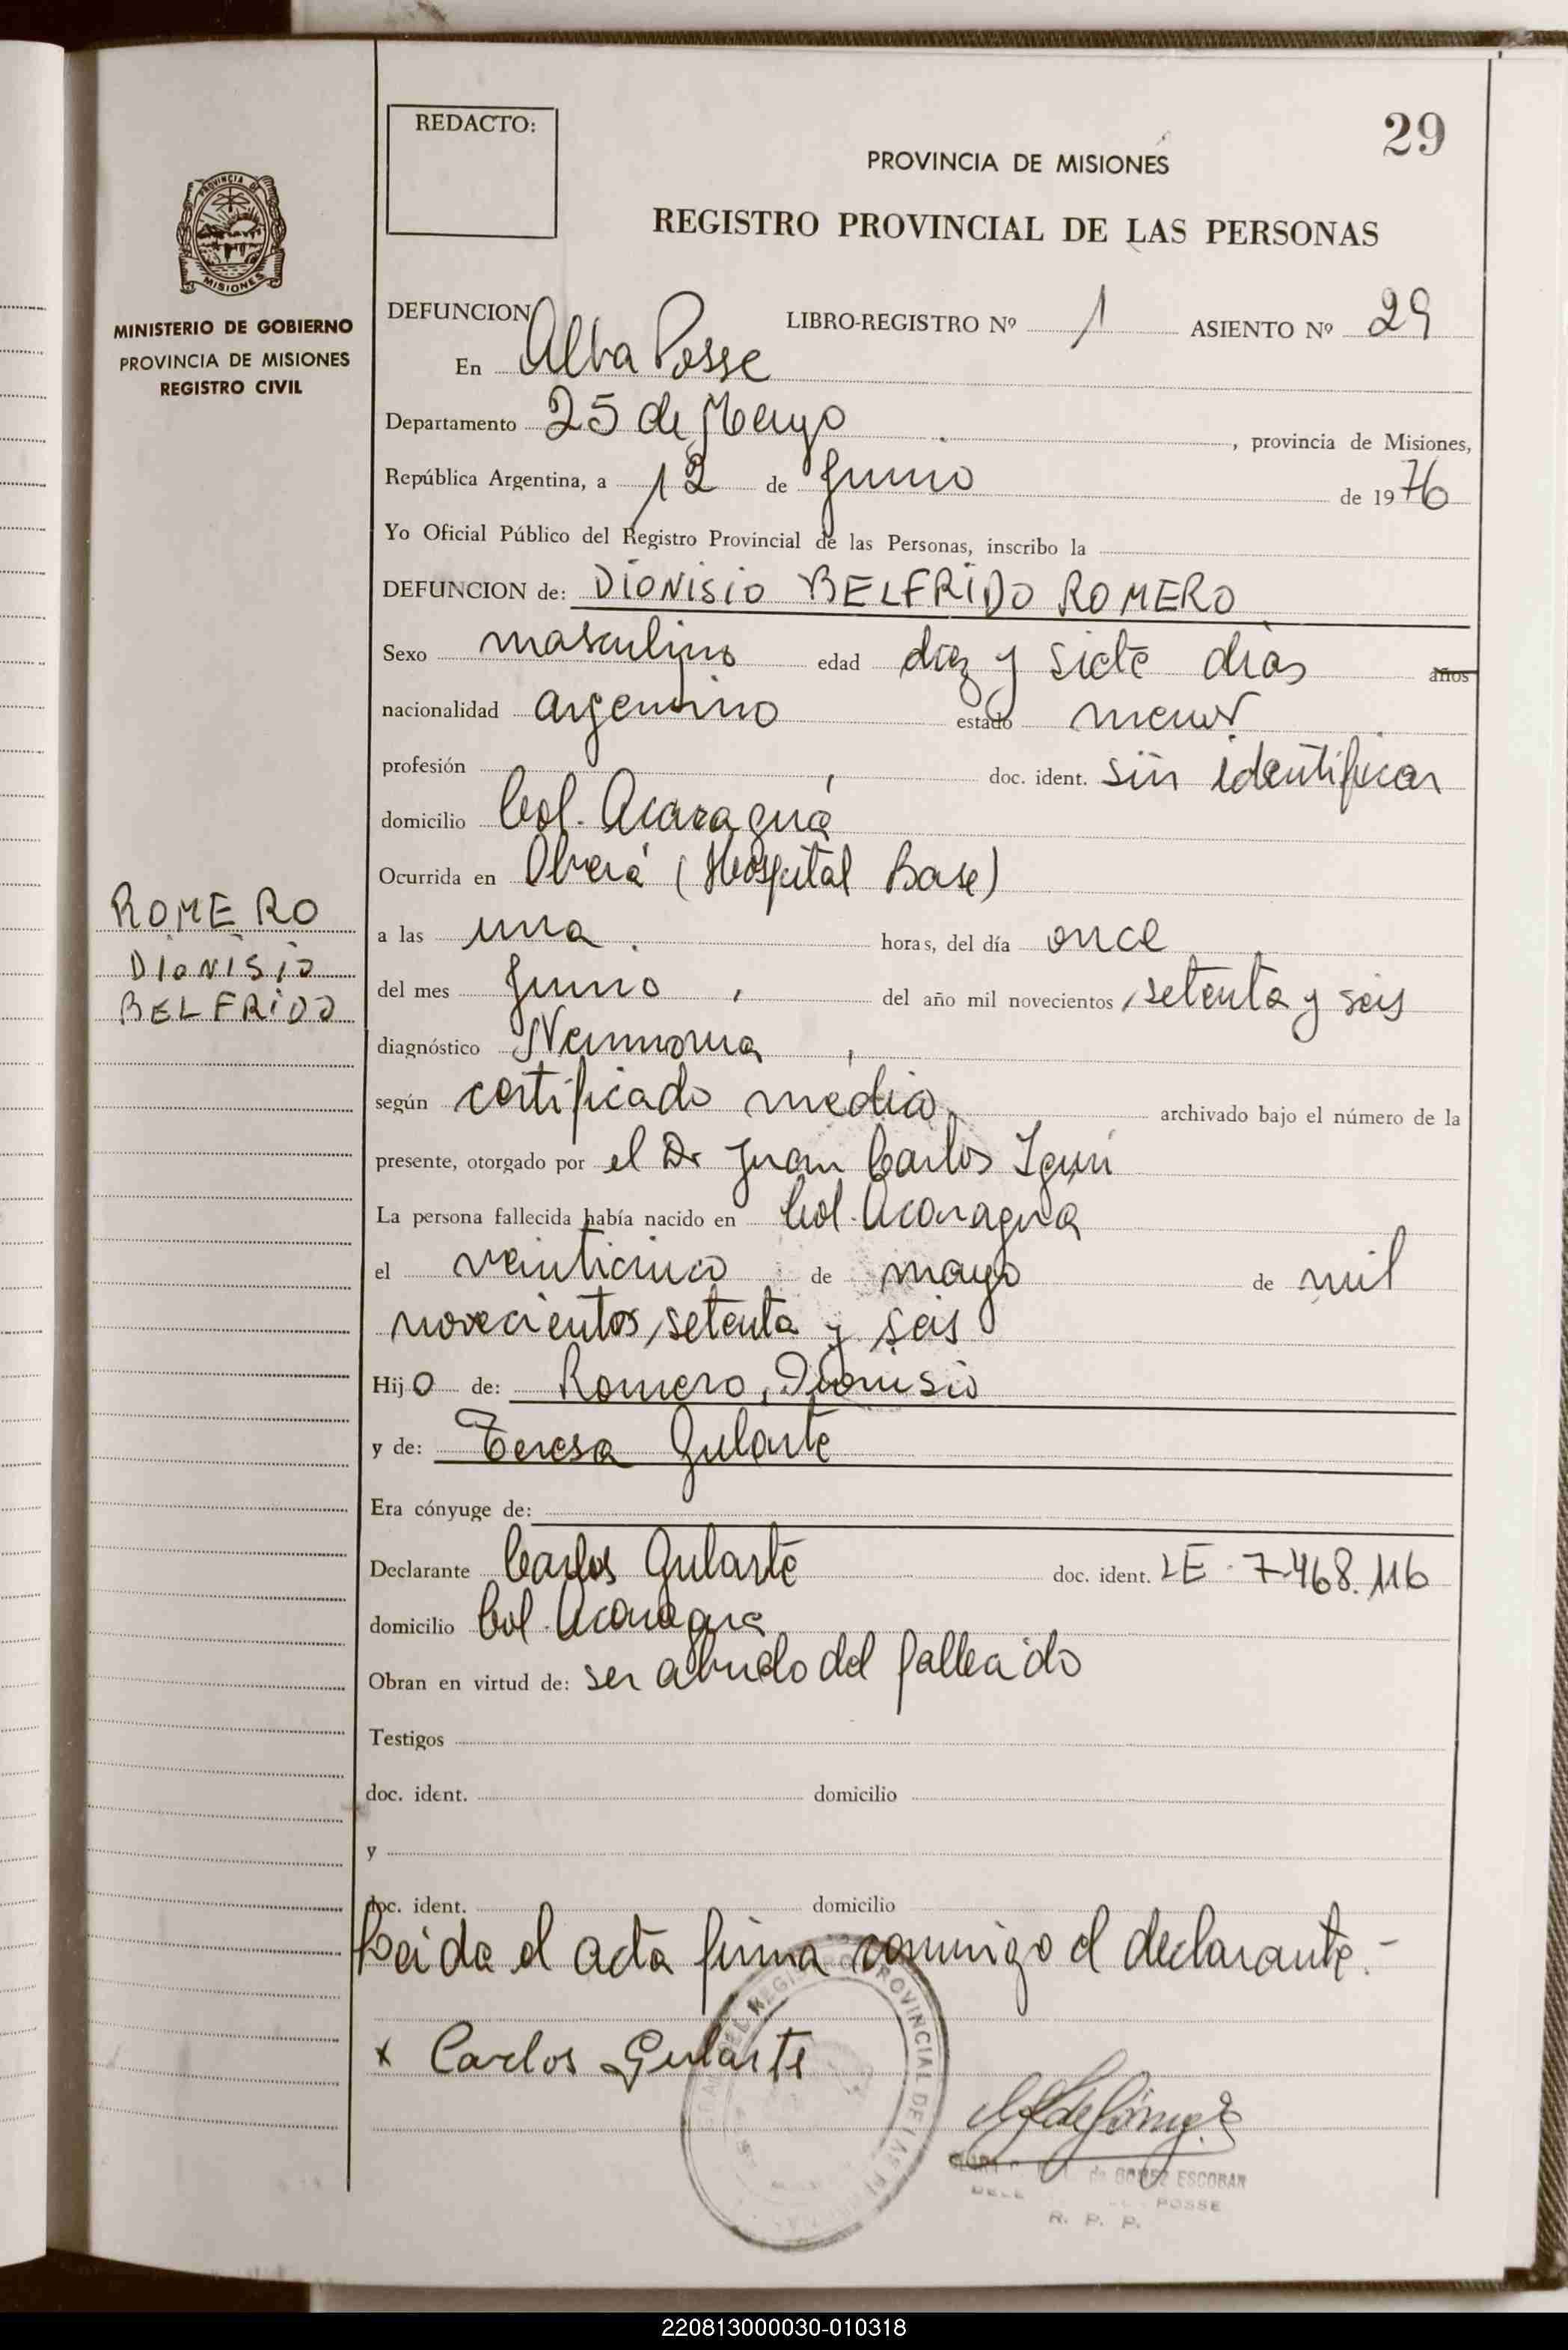 REDACTO:
29
PROVINCIA DE MISIONES
REGISTRO PROVINCIAL DE LAS PERSONAS
PROVINCIA DE
MISIONES
MINISTERIO DE GOBIERNO
PROVINCIA DE MISIONES
REGISTRO CIVIL
DEFUNCION LIBRO-REGISTRO Nº 1 ASIENTO Nº 29
En Alba Posse
Departamento 25 de Mayo, provincia de Misiones,
República Argentina, a 12 de Junio de 1976
Yo Oficial Público del Registro Provincial de las Personas, inscribo la
DEFUNCION de: DIONISIO BELFRIDO ROMERO
Sexo masculino edad diez y siete días años
nacionalidad argentino estado menor
profesión doc. ident. sin identificar
domicilio Col. Acaraguá
Ocurrida en Oberá (Hospital Base)
a las una horas, del día once
del mes Junio del año mil novecientos setenta y seis
diagnóstico Neumonia
según certificado médico, archivado bajo el número de la
presente, otorgado por el Dr Juan Carlos
La persona fallecida había nacido en Col. Acaragua
el veinticinco de mayo de mil
novecientos setenta y seis
Hijo de: Romero, Dionisio
y de: Teresa Gularte
Era cónyuge de:
Declarante Carlos Gularte doc. ident. LE 7.468.116
domicilio Col. Acaragua
Obran en virtud de: ser abuelo del fallecido
Testigos
doc. ident. domicilio
y
doc. ident. domicilio
Leida el acta firma conmigo el declarante.-
x Carlos Gularte
ROMERO
DIONISIO
BELFRIDO
DEL REGISTRO PROVINCIAL DE LAS
de GOMEZ ESCOBAR
POSSE
R. P. P.
220813000030-010318